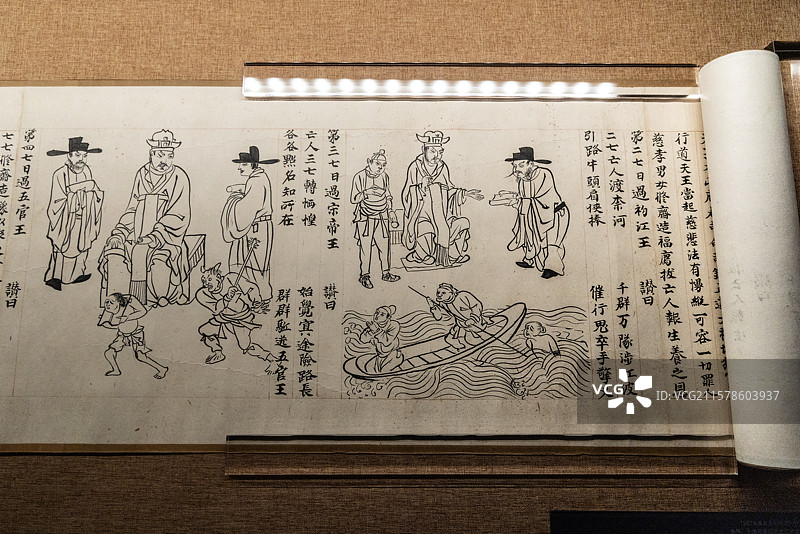 行道天王當起慈悲法有慢縱可容一切罪
慈孝男女修齋造福薦拔亡人報生養之恩
第二七日過初江王 讚曰
二七亡人渡奈河 千群万隊涉江波
引路牛頭肩挾棒 催行鬼卒手擎
第三七日過宋帝王 讚曰
亡人三七轉恓惶 始覺冥途險路長
各各點名知所在 群群驅送五官王
第四七日過五官王 讚曰
VCG
ID: VCG211578603937